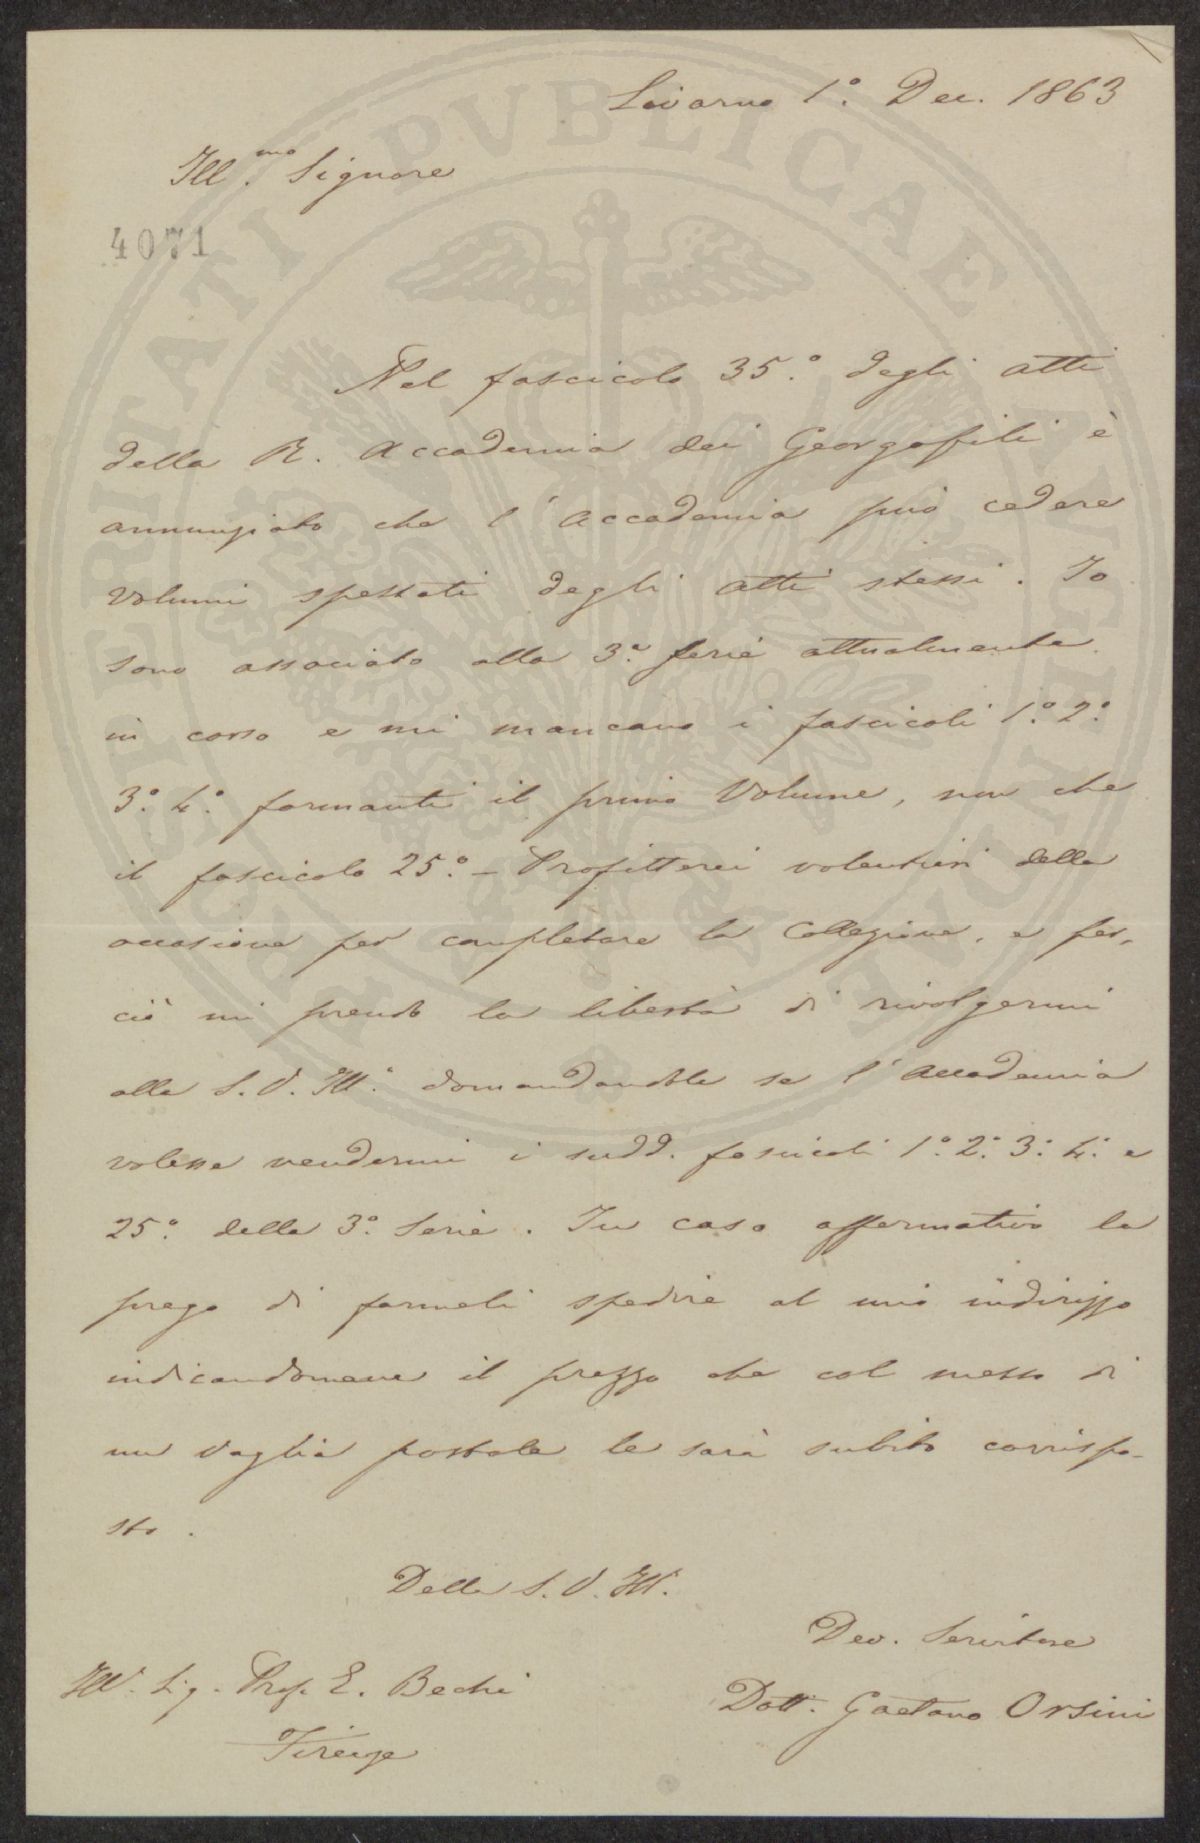 Livorno 1°. Dec. 1863
Ill.mo Signore
4071
Nel fascicolo 35.° degli atti
della R. Accademia dei Georgofili è
annunziato che l'Accademia può cedere
volumi spezzati degli atti stessi. Io
sono associato alla 3.a serie attualmente
in corso e mi mancano i fascicoli 1.° 2.°
3.° 4.° formanti il primo Volume, non che
il fascicolo 25.° - Profitterei volentieri della
occasione per completare la Collezione, e per,
ciò mi prendo la libertà di rivolgermi
alla S. V. Ill.a domandandole se l'Accademia
volesse vendermi i sudd. fascicoli 1.° 2.° 3.° 4.° e
25.° della 3.a Serie. In caso affermativo la
prego di farmeli spedire al mio indirizzo
indicandomene il prezzo che col mezzo di
un vaglia postale le sarà subito corrispo-
sto.
Della S. V. Ill.
Dev. Servitore
Ill. Sig. Prof. E. Bechi
Dott. Gaetano Orsini
Firenze
PROSPERITATI PVBLICAE AVGENDAE